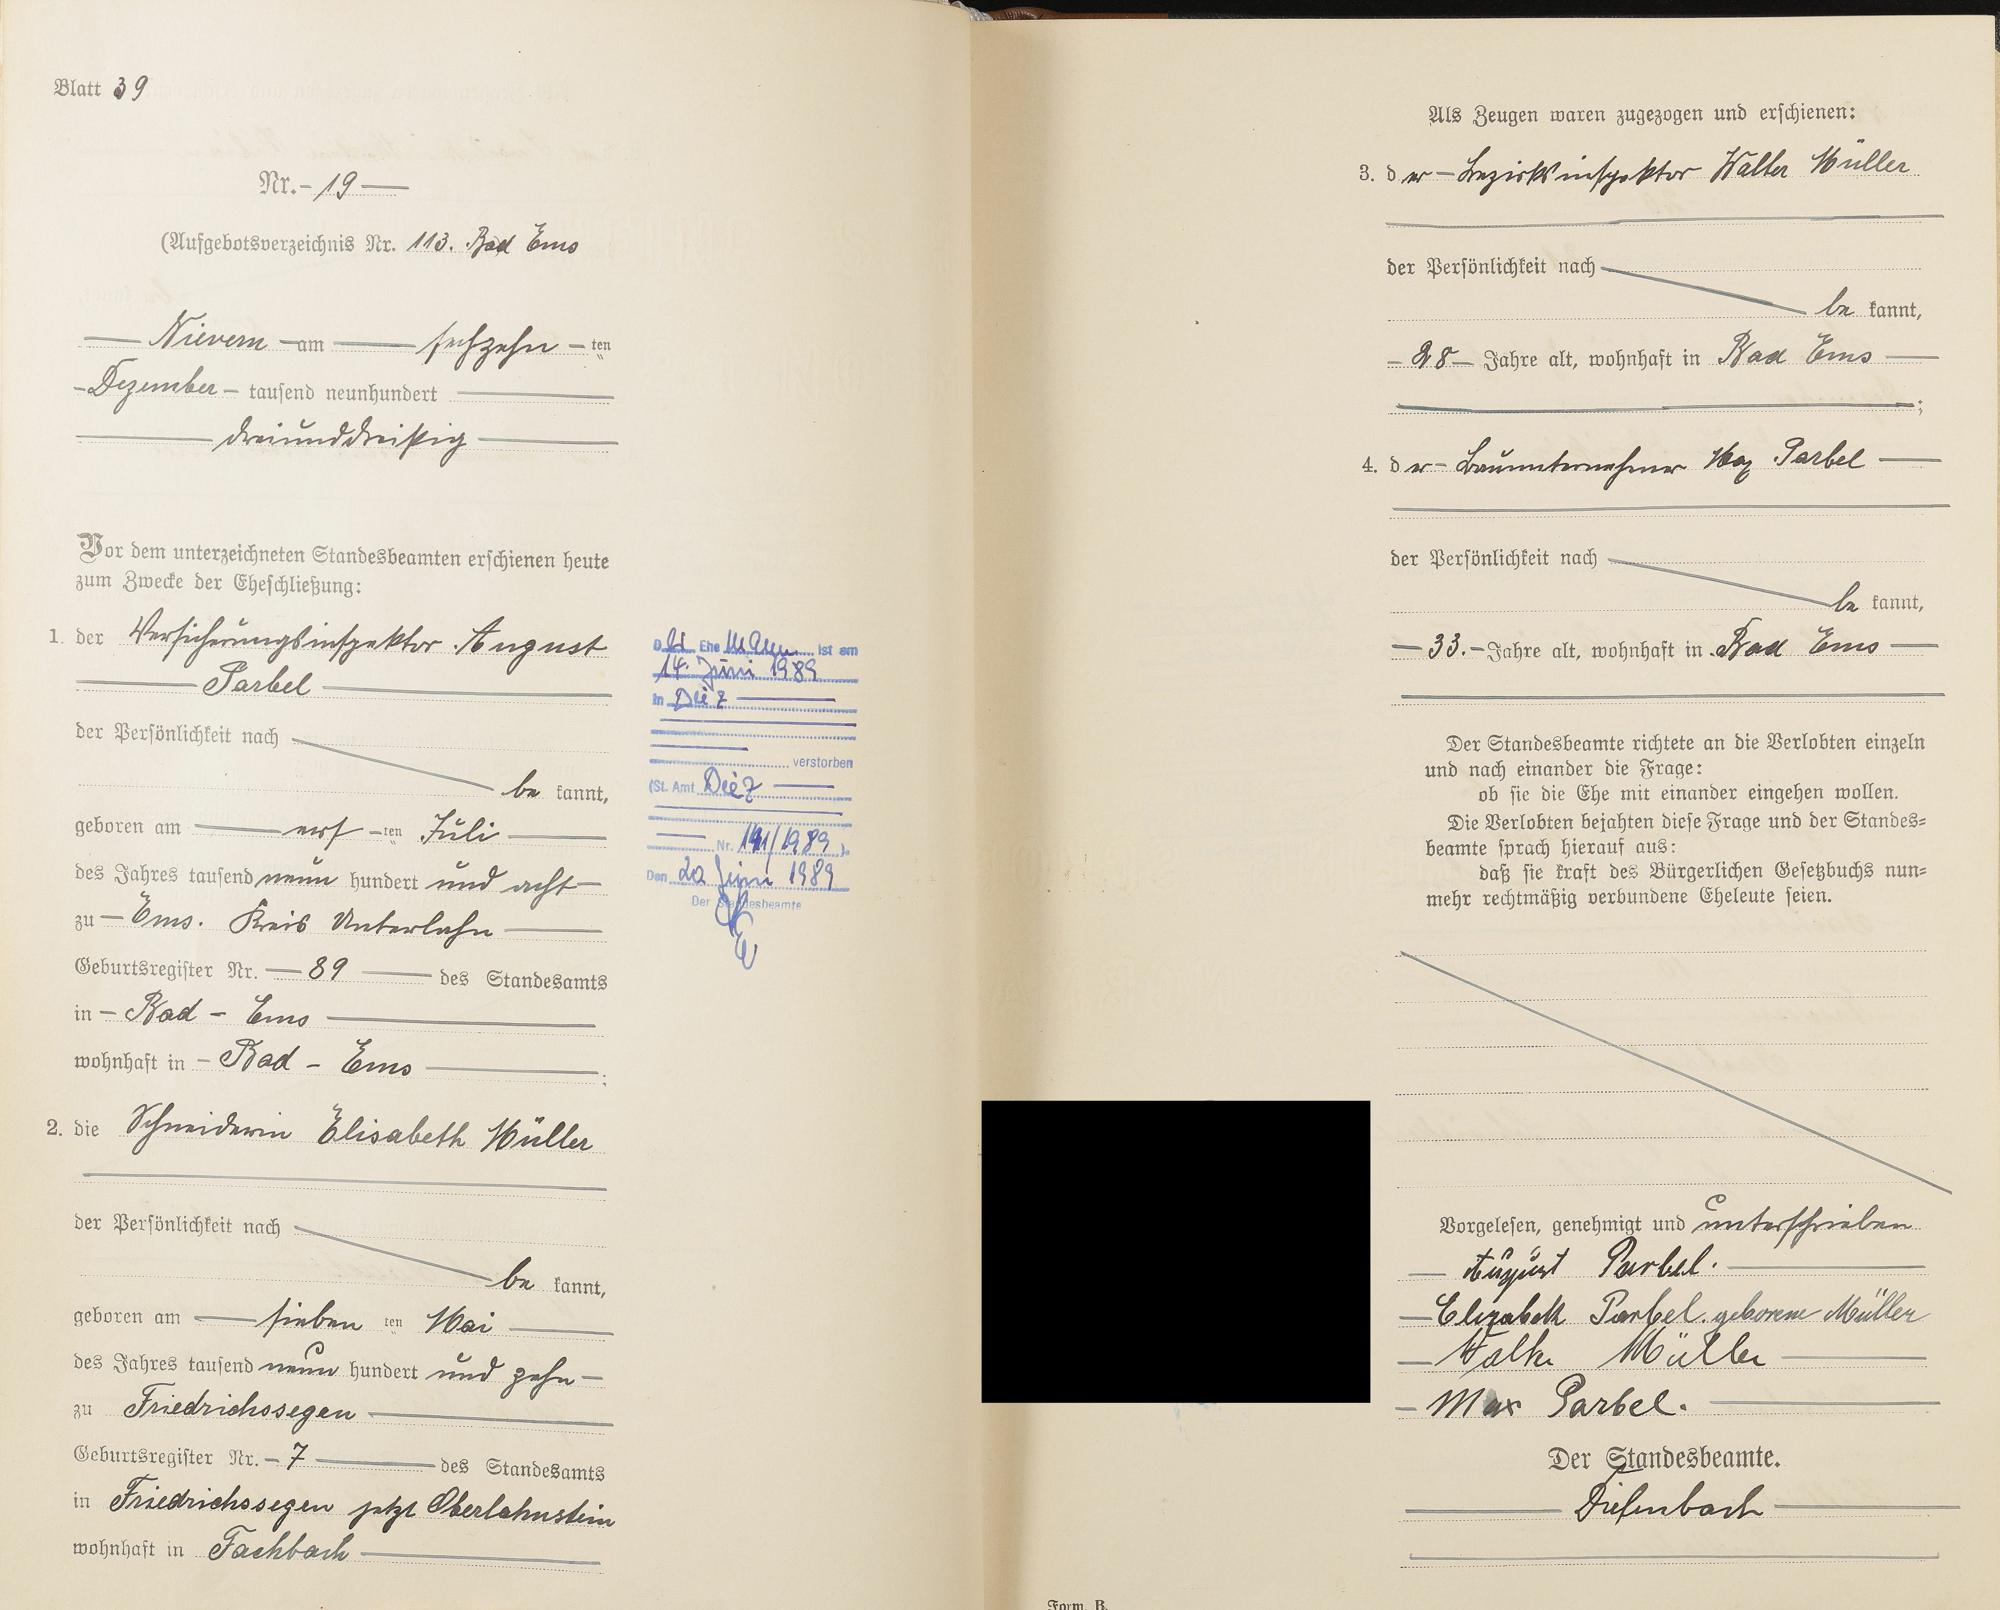 Blatt 39
Nr. 19
(Aufgebotsverzeichnis Nr. 113. Bad Ems
Nievern am sechzehn ten
Dezember tausend neunhundert
dreiunddreißig
Vor dem unterzeichneten Standesbeamten erschienen heute
zum Zwecke der Eheschließung:
1. der Versicherungsinspektor August
Parbel
der Persönlichkeit nach
be kannt,
geboren am ers ten Juli
des Jahres tausend neun hundert und acht
zu Ems. Kreis Unterlahn
Geburtsregister Nr. 89 des Standesamts
in Bad - Ems
wohnhaft in Bad - Ems ;
2. die Schneiderin Elisabeth Müller
der Persönlichkeit nach
be kannt,
geboren am sieben ten Mai
des Jahres tausend neun hundert und zehn
zu Friedrichssegen
Geburtsregister Nr. 7 des Standesamts
in Friedrichssegen jetzt Oberlahnstein
wohnhaft in Fachbach
Der Ehemann ist am
14. Juni 1989
in Diez
verstorben
(St. Amt Diez
Nr. 141/1989).
Den 20 Juni 1989
Der Standesbeamte
Als Zeugen waren zugezogen und erschienen:
3. der Bezirksinspektor Walter Müller
der Persönlichkeit nach
be kannt,
28 Jahre alt, wohnhaft in Bad Ems
;
4. der Bauunternehmer Max Parbel
der Persönlichkeit nach
be kannt,
33. Jahre alt, wohnhaft in Bad Ems
Der Standesbeamte richtete an die Verlobten einzeln
und nach einander die Frage:
ob sie die Ehe mit einander eingehen wollen.
Die Verlobten bejahten diese Frage und der Standes=
beamte sprach hierauf aus:
daß sie kraft des Bürgerlichen Gesetzbuchs nun=
mehr rechtmäßig verbundene Eheleute seien.
Vorgelesen, genehmigt und unterschrieben
August Parbel.
Elisabeth Parbel. geborene Müller
Walter Müller
Max Parbel.
Der Standesbeamte.
Diefenbach
Form. B.